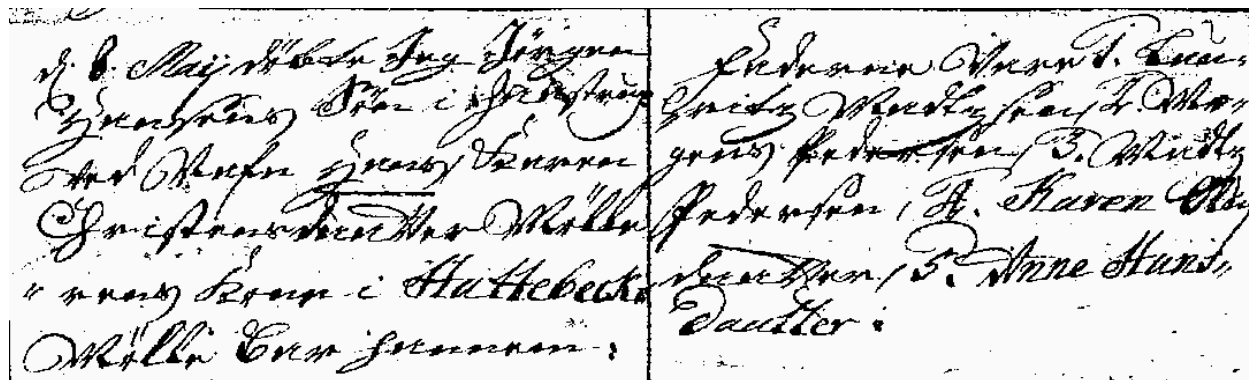 d. 8. Maij döbte Jeg Jörgen
Hansens Sön i Haustrup
ved Nafn Hans, Karen
Christensdaatter Mölle
rens Kone i Hattebecks
Mölle bar hannem.
Fadderne vare 1. Lau-
ritz Madtzsen, 2. Mo-
gens Pedersen, 3. Madtz
Pedersen, 4. Karen
daatter, 5. Anne Hans-
daatter.